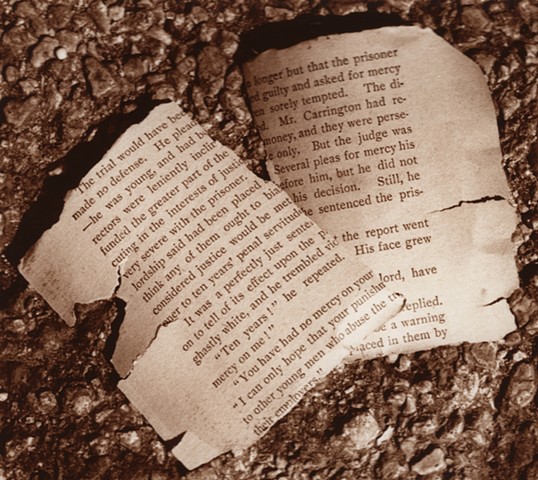 The trial would have
made no defense. He
—he was young, and had
rectors were leniently
funded the greater part of the
cuting in the interests of
very severe with the prisoner
lordship said had been placed
think any of them ought to
considered justice would be
to ten years' penal
It was a perfectly just
on to tell of its effect upon the
ghastly white, and he trembled
“Ten years!” he repeated.
mercy on me!”
“You have had no mercy on your
“I can only hope that your
to other young men who abuse the
their employers.”
longer but that the prisoner
guilty and asked for mercy
sorely tempted. The di-
Mr. Carrington had re-
money, and they were perse-
only. But the judge was
Several pleas for mercy his
him, but he did not
his decision. Still, he
sentenced the pris-
the report went
His face grew
lord, have
replied.
a warning
placed in them by